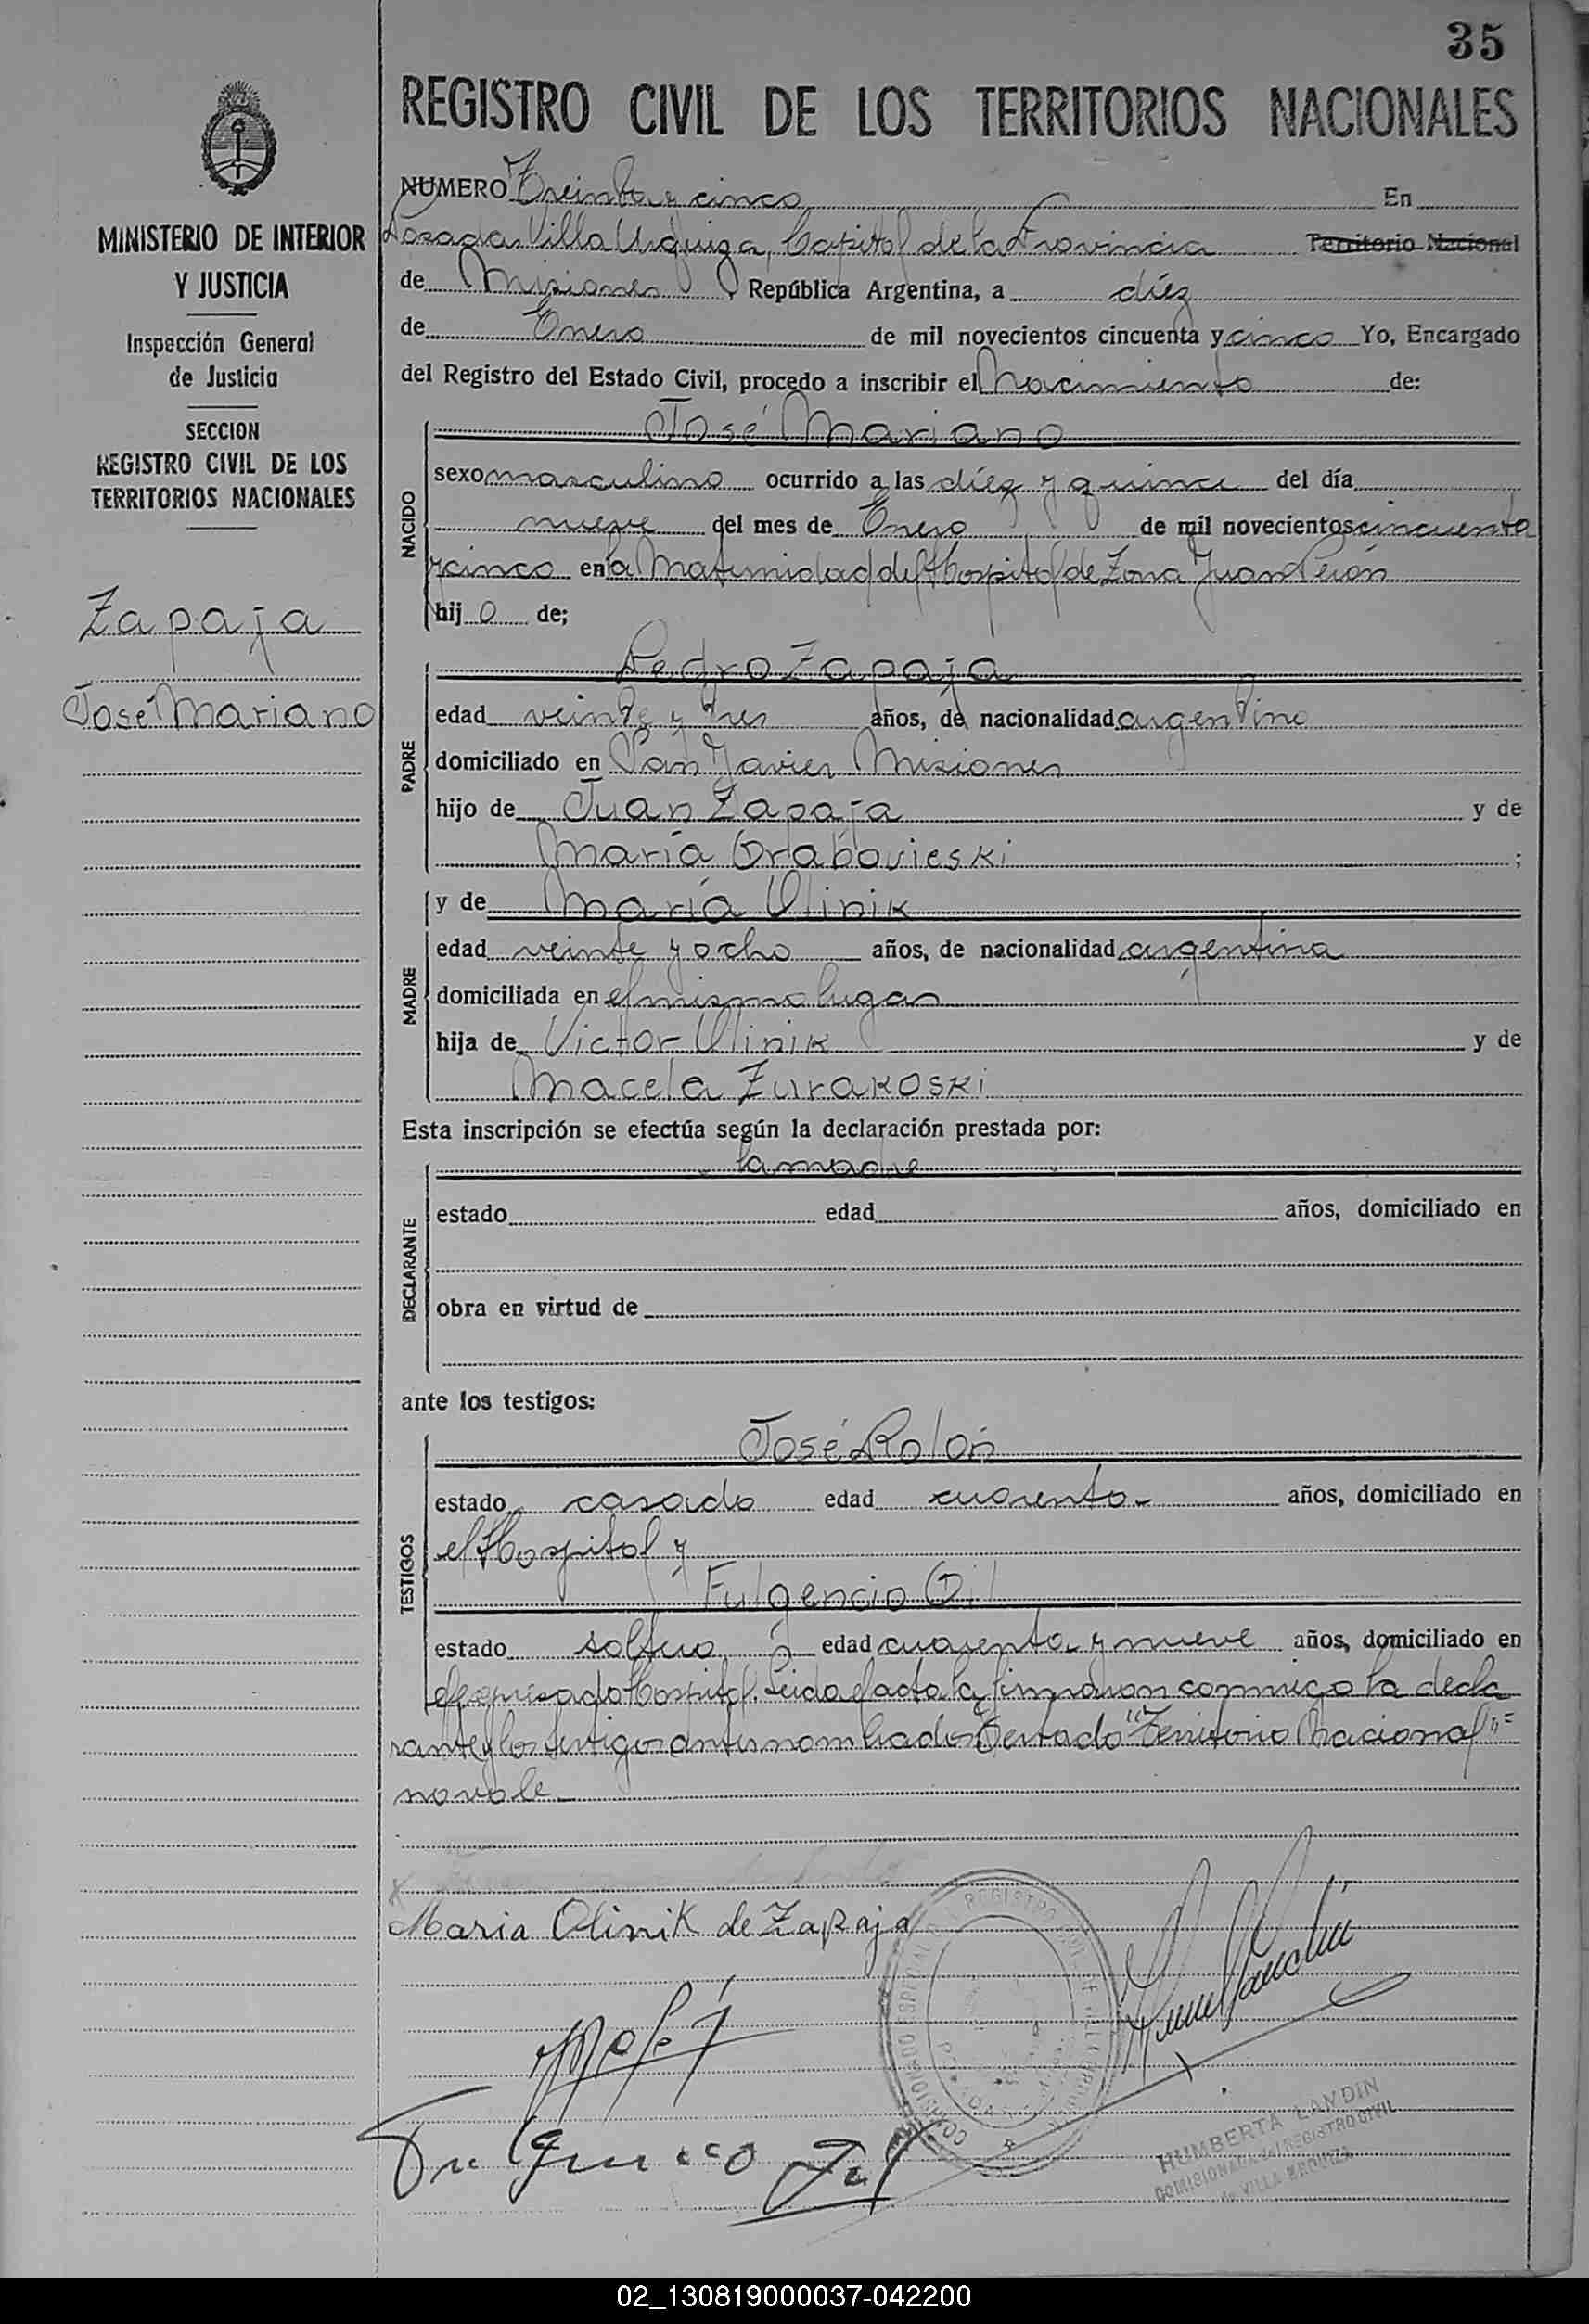 35
REGISTRO CIVIL DE LOS TERRITORIOS NACIONALES
MINISTERIO DE INTERIOR
Y JUSTICIA
Inspección General
de Justicia
SECCION
REGISTRO CIVIL DE LOS
TERRITORIOS NACIONALES
Zapaja
José Mariano
NUMERO Treinta y cinco En
Posadas Villa Urquiza, Capital de la Provincia Territorio Nacional
de Misiones, República Argentina, a diéz
de Enero de mil novecientos cincuenta y cinco Yo, Encargado
del Registro del Estado Civil, procedo a inscribir el Nacimiento de:
NACIDO
José Mariano
sexo masculino ocurrido a las diéz y quince del día
nueve del mes de Enero de mil novecientos cincuenta
y cinco en la Maternidad del Hospital de Zona Juan Perón
hij o de;
PADRE
Pedro Zapaja
edad veinte y tres años, de nacionalidad argentino
domiciliado en San Javier Misiones
hijo de Juan Zapaja y de
María Grabovieski ;
y de María Olinik
MADRE
edad veinte y ocho años, de nacionalidad argentina
domiciliada en el mismo lugar
hija de Victor Olinik y de
Macela Zurakoski
Esta inscripción se efectúa según la declaración prestada por:
DECLARANTE
la madre
estado edad años, domiciliado en
obra en virtud de
ante los testigos:
TESTIGOS
José Rolón
estado casado edad cuarenta años, domiciliado en
el Hospital y
Fulgencio Gil
estado soltero edad cuarenta y nueve años, domiciliado en
el expresado Hospital. Leida el acta la firmaron conmigo la decla
rante y los testigos antes nombrados Testado "Territorio Nacional" =
no vale
Maria Olinik de Zapaja
Fulgencio Gil
HUMBERTA LANDIN
COMISIONADA del REGISTRO CIVIL
de VILLA URQUIZA
02_130819000037-042200